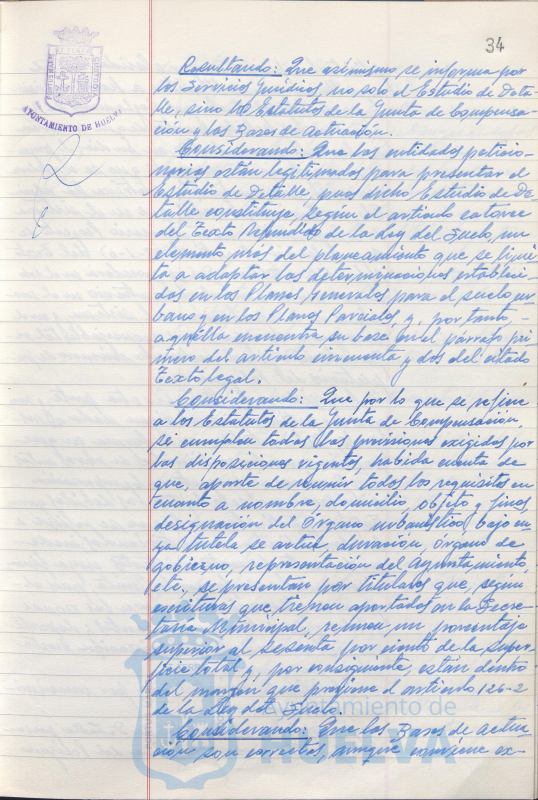 34
AYUNTAMIENTO DE HUELVA
Resultando: Que asimismo se informa por
los Servicios Jurídicos, no solo el Estudio de Deta-
lle, sino los Estatutos de la Junta de Compensa-
ción y las Bases de Actuación.
Considerando: Que las entidades peticio-
narias están legitimadas para presentar el
Estudio de Detalle, pues dicho Estudio de De-
talle constituye, según el artículo catorce
del Texto Refundido de la Ley del Suelo, un
elemento más del planeamiento que se limi-
ta a adaptar las determinaciones estableci-
das en los Planes Generales para el suelo ur-
bano y en los Planes Parciales, y, por tanto -
aquélla encuentra su base en el párrafo pri-
mero del artículo cincuenta y dos del citado
Texto legal.
Considerando: Que por lo que se refiere
a los Estatutos de la Junta de Compensación,
se cumplen todas las previsiones exigidas por
las disposiciones vigentes, habida cuenta de
que, aparte de reunir todos los requisitos en
cuanto a nombre, domicilio, objeto y fines,
designación del Órgano urbanístico bajo cu-
ya tutela se actúa, duración, órgano de
gobierno, representación del Ayuntamiento,
etc., se presentan por titulares que, según
escrituras que tienen aportadas en la Secre-
taría Municipal, reúnen un porcentaje
superior al sesenta por ciento de la super-
ficie total y, por consiguiente, están dentro
del margen que previene el artículo 126-2
de la Ley del Suelo.
Considerando: Que las Bases de Actua-
ción son correctas, aunque conviene ex-
Ayuntamiento de
HUELVA